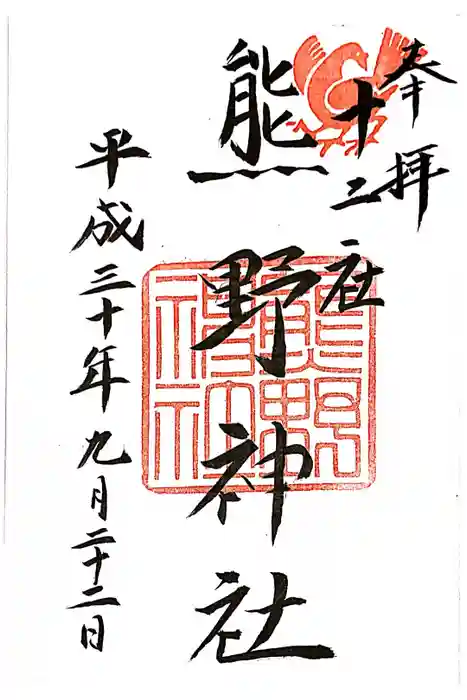 奉拝
十二社
熊野神社
平成三十年九月二十二日
熊野神社